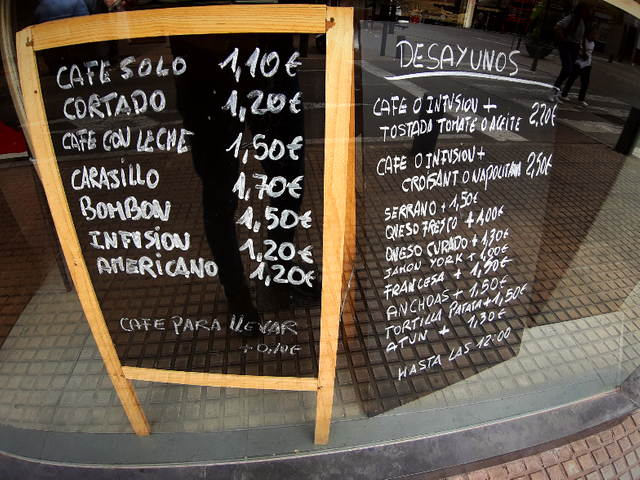 CAFE SOLO 1,10€
CORTADO 1,20€
CAFE CON LECHE 1,50€
CARAJILLO 1,70€
BOMBON 1,50€
INFUSION 1,20€
AMERICANO 1,20€
CAFE PARA LLEVAR
+0,10€
DESAYUNOS
CAFE O INFUSION +
TOSTADA TOMATE O ACEITE 2,20€
CAFE O INFUSION +
CROISANT O NAPOLITANA 2,50€
SERRANO + 1,50€
QUESO FRESCO + 1,00€
QUESO CURADO + 1,30€
JAMON YORK + 1,00€
FRANCESA + 1,50€
ANCHOAS + 1,50€
TORTILLA PATATA + 1,50€
ATUN + 1,30€
HASTA LAS 12:00